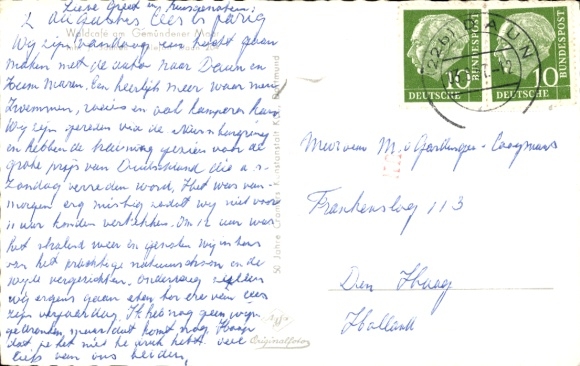 Lieve Greet en
2 augustus Cees is jarig
Waldcafé am Gemündener Maar
Wij zijn vandaag een tocht gaan
maken met de auto naar Daun en
Maren. Een heerlijk meer waar men
zwemmen, roeien en ook kamperen kan.
Wij zijn gereden via de Nürnburgring
en hebben de training gezien voor de
grote prijs van Duitschland die a.s.
Zondag verreden word. Het was van-
morgen erg mistig zodat wij niet voor
11 uur konden vertrekken. Om 12 uur was
het stralend weer en genoten wij
van het prachtige natuurschoon en de
wijde vergezichten. Onderweg
wij ergens gaan eten ter ere van Cees
zijn verjaardag. Ik heb nog geen wijn
gedronken, maar dat komt nog. Hoop
dat je het niet te druk hebt. Veel
liefs van ons beiden,
50 Jahre Cramers Kunstanstalt K.G., Dortmund
Originalfoto
DAUN
DEUTSCHE BUNDESPOST 10
DEUTSCHE BUNDESPOST 10
Mevr van M.
Frankenslag 113
Den Haag
Holland